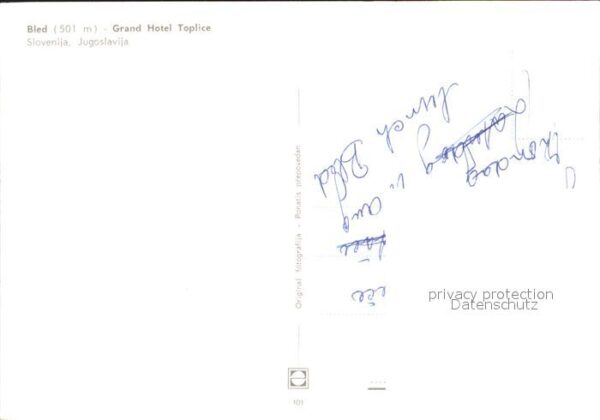 Bled (501 m) - Grand Hotel Toplice
Slovenija, Jugoslavija
Original fotografija - Ponatis prepovedan
lunch Bled
aug
privacy protection
Datenschutz
101